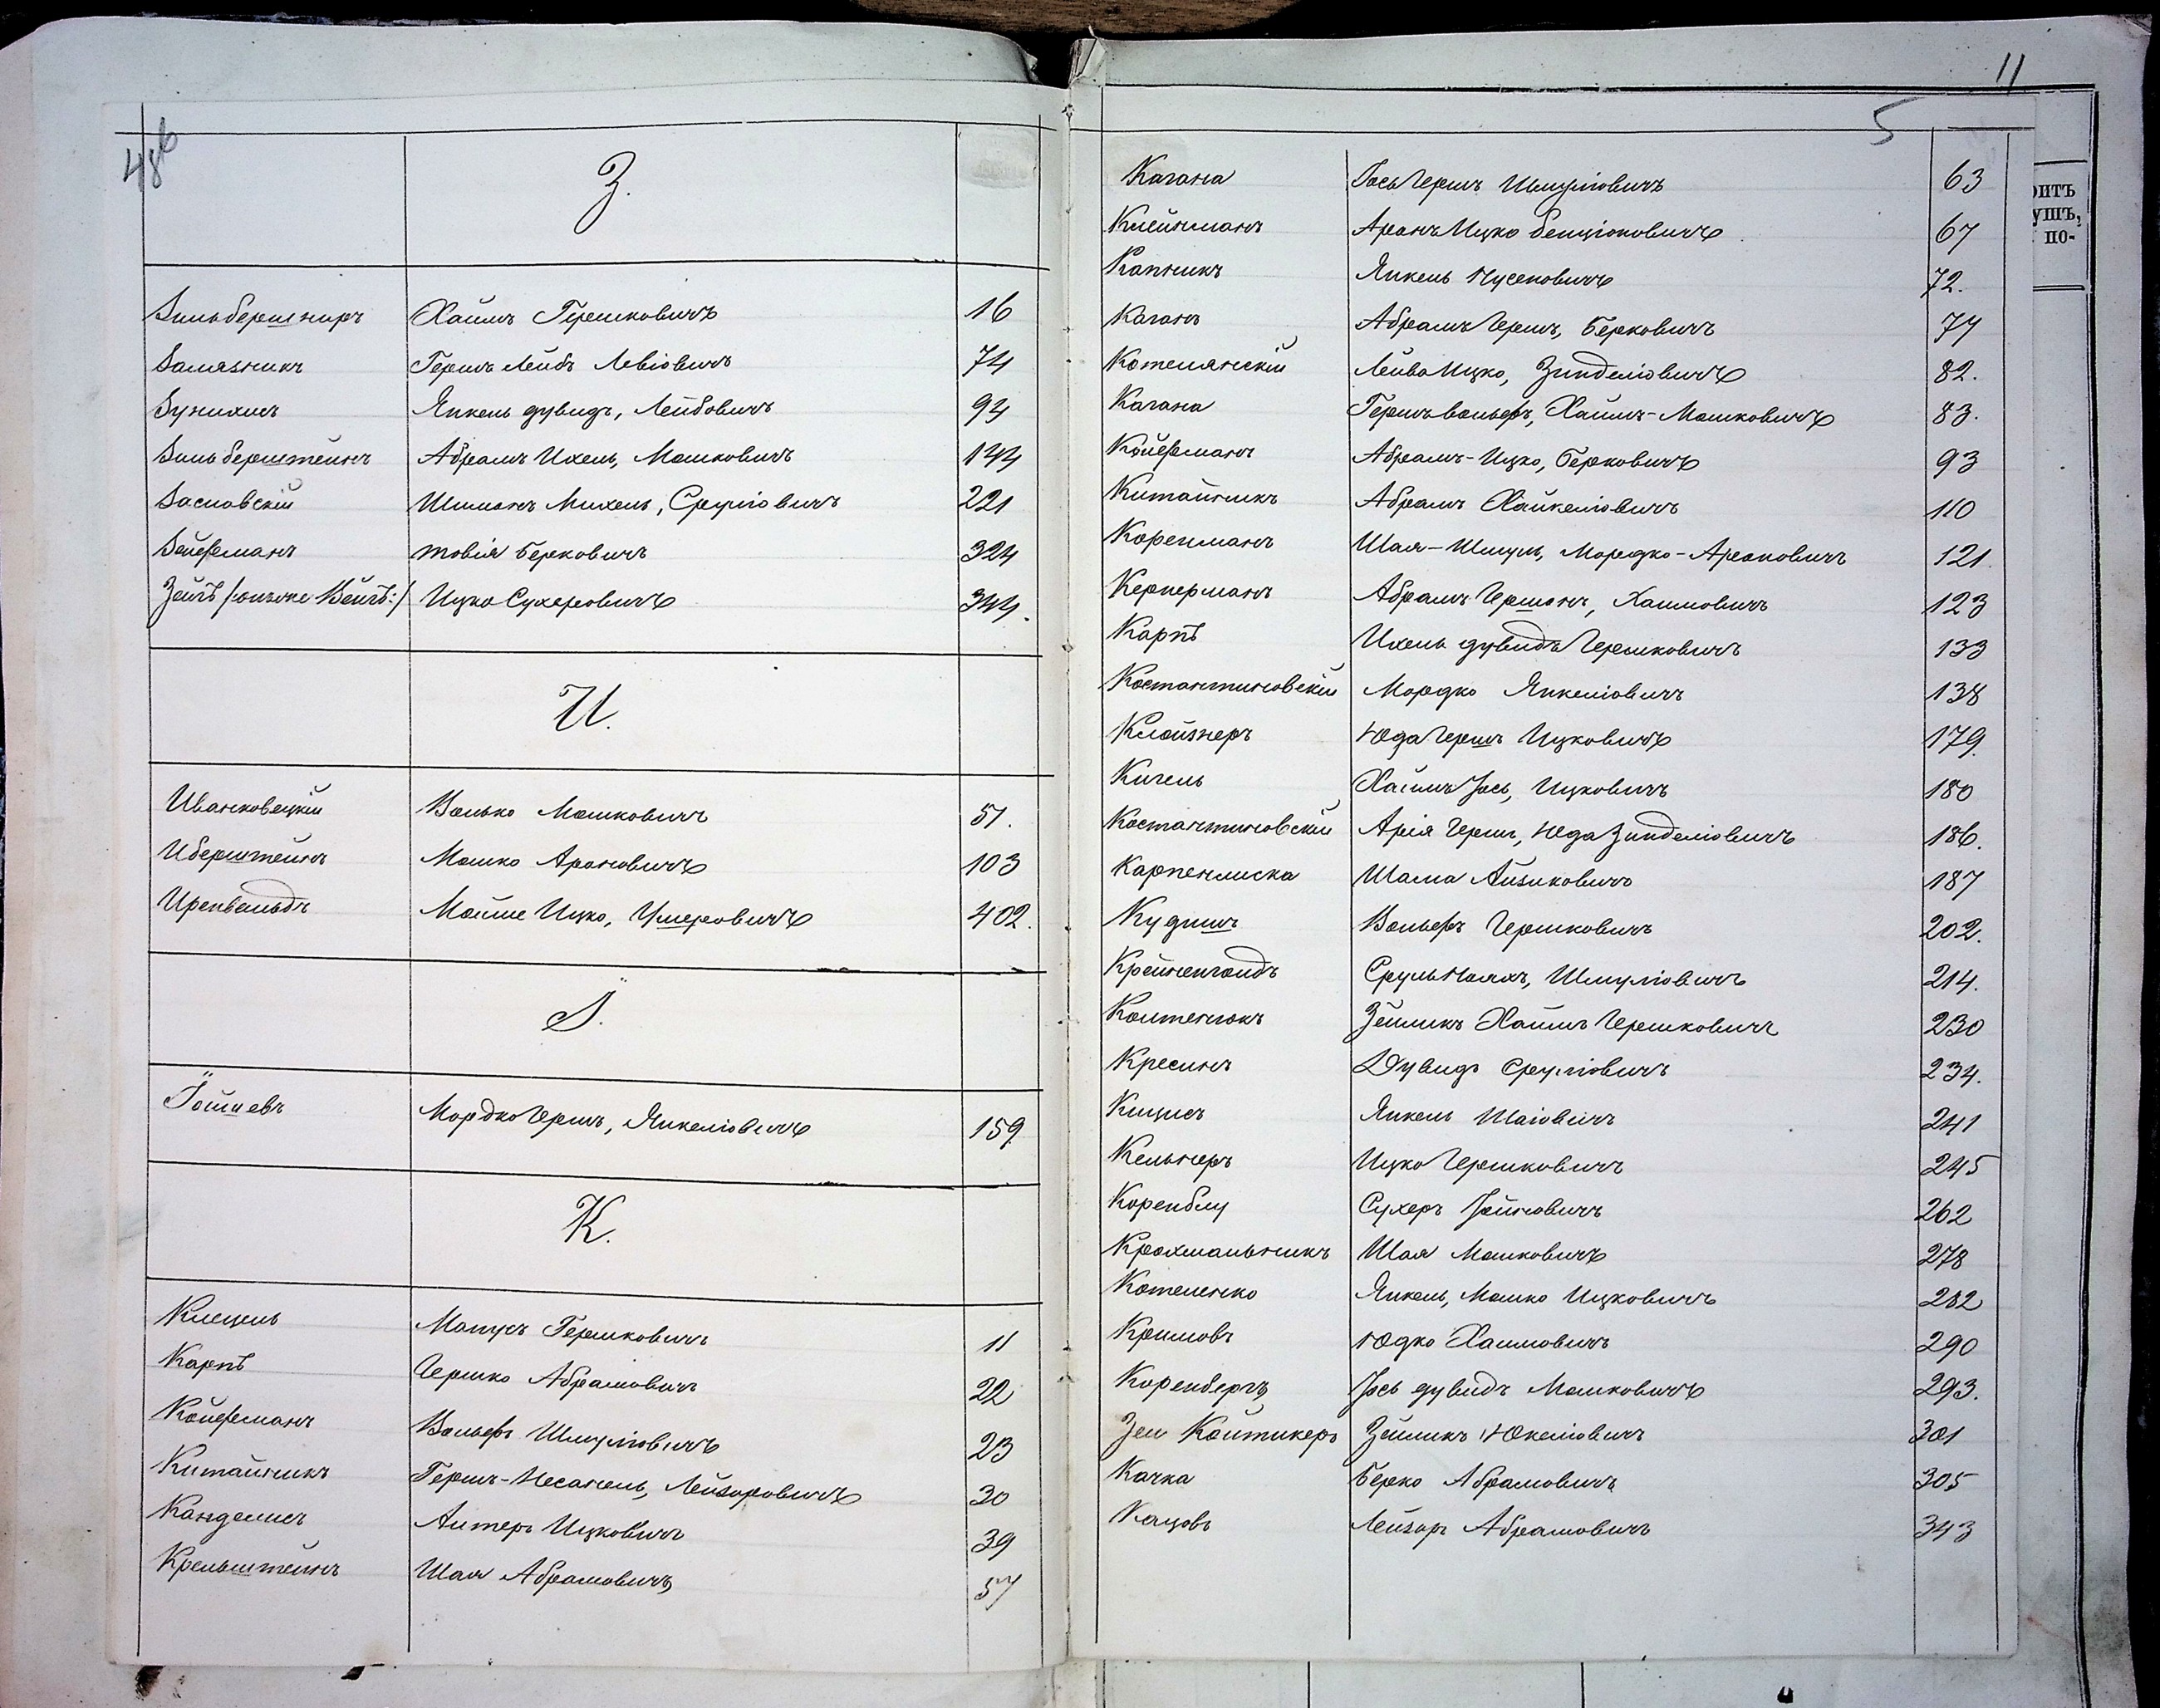 486
З.
Зильбершниръ Хаимъ Гершковичъ 16
Замязникъ Гершъ Лейбъ Левіовичъ 74
Зунихисъ Янкель дувидъ, Лейбовичъ 94
Зильберштейнъ Абрамъ Ихель, Мошковичъ 144
Заславскій Шимонъ Михель, Сруліовичъ 221
Зейфманъ товія Берковичъ 324
Ицко Сухеровичъ 344.
И.
Иванковецкій Волько Мошковичъ 51.
Иберштейнъ Мошко Ароновичъ 103
Иренвельдъ Мойше Ицко, Ушеровичъ 402.
І.
Іошиевъ Мордко Гершъ, Янкеліовичъ 159
К.
Клецель Манусъ Гершковичъ 11
Карпъ Гершко Абрамовичъ 22
Койфманъ Вольфъ Шмуліовичъ 23
Китайникъ Гершъ-Несанель, Лейзоровичъ 30
Канделисъ Алтеръ Ицковичъ 39
Крельштейнъ Шая Абрамовичъ 57
11
5
оитъ
ушъ,
по-
Кагана Іось Гершъ Шмуліовичъ 63
Клейнманъ Аронъ Ицко Бенціоновичъ 67
Капникъ Янкель Нусеновичъ 72.
Каганъ Абрамъ Гершъ, Берковичъ 77
Котелянскій Лейва Ицко, Зинделіовичъ 82.
Кагана Гершъ вольфъ, Хаимъ-Мошковичъ 83.
Койфманъ Абрамъ-Ицко, Берковичъ 93
Китайникъ Абрамъ Хайкеліовичъ 110
Коренманъ Шая-Шмуль, Мордко-Ароновичъ 121.
Керперманъ Абрамъ Гершонъ, Хаимовичъ 123
Карпъ Ихель дувидъ Гершковичъ 133
Костантиновскій Мордко Янкеліовичъ 138
Клойзнеръ Юда Гершъ Ицковичъ 179.
Кигель Хаимъ Іось, Ицковичъ 180
Костантиновскій Арія Гершъ, Юда Зинделіовичъ 186.
Карпенлиска Шама Айзиковичъ 187
Кудишъ Вольфъ Гершковичъ 202.
Крейненгольдъ Сруль Нояхъ, Шмуліовичъ 214.
Колтенюкъ Зейликъ Хаимъ Гершковичъ 230
Кресинъ Дувидъ Сруліовичъ 234.
Кицисъ Янкель Шаіовичъ 241
Кельнеръ Ицко Гершковичъ 245
Коренблу Сухеръ Іойновичъ 262
Крохмальникъ Шая Мошковичъ 278
Котеленко Янкель, Мошко Ицковичъ 282
Кримовъ Юдко Хаимовичъ 290
Коренбергъ Іось дувидъ Мошковичъ 293.
Зел Колтикеръ Зейликъ Юкеліовичъ 301
Качка Берко Абрамовичъ 305
Кацовъ Лейзоръ Абрамовичъ 343